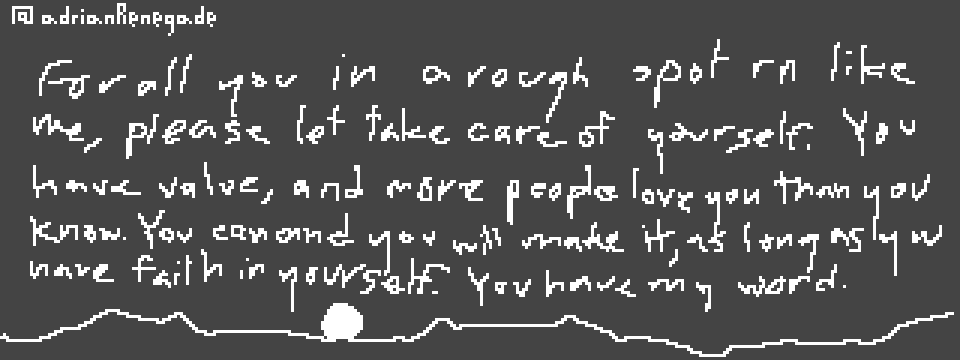 @adrianRenegade
For all you in a rough spot rn like
me, please let take care of yourself. You
have value, and more people love you than you
know. You can and you will make it, as long as you
have faith in yourself. You have my word.